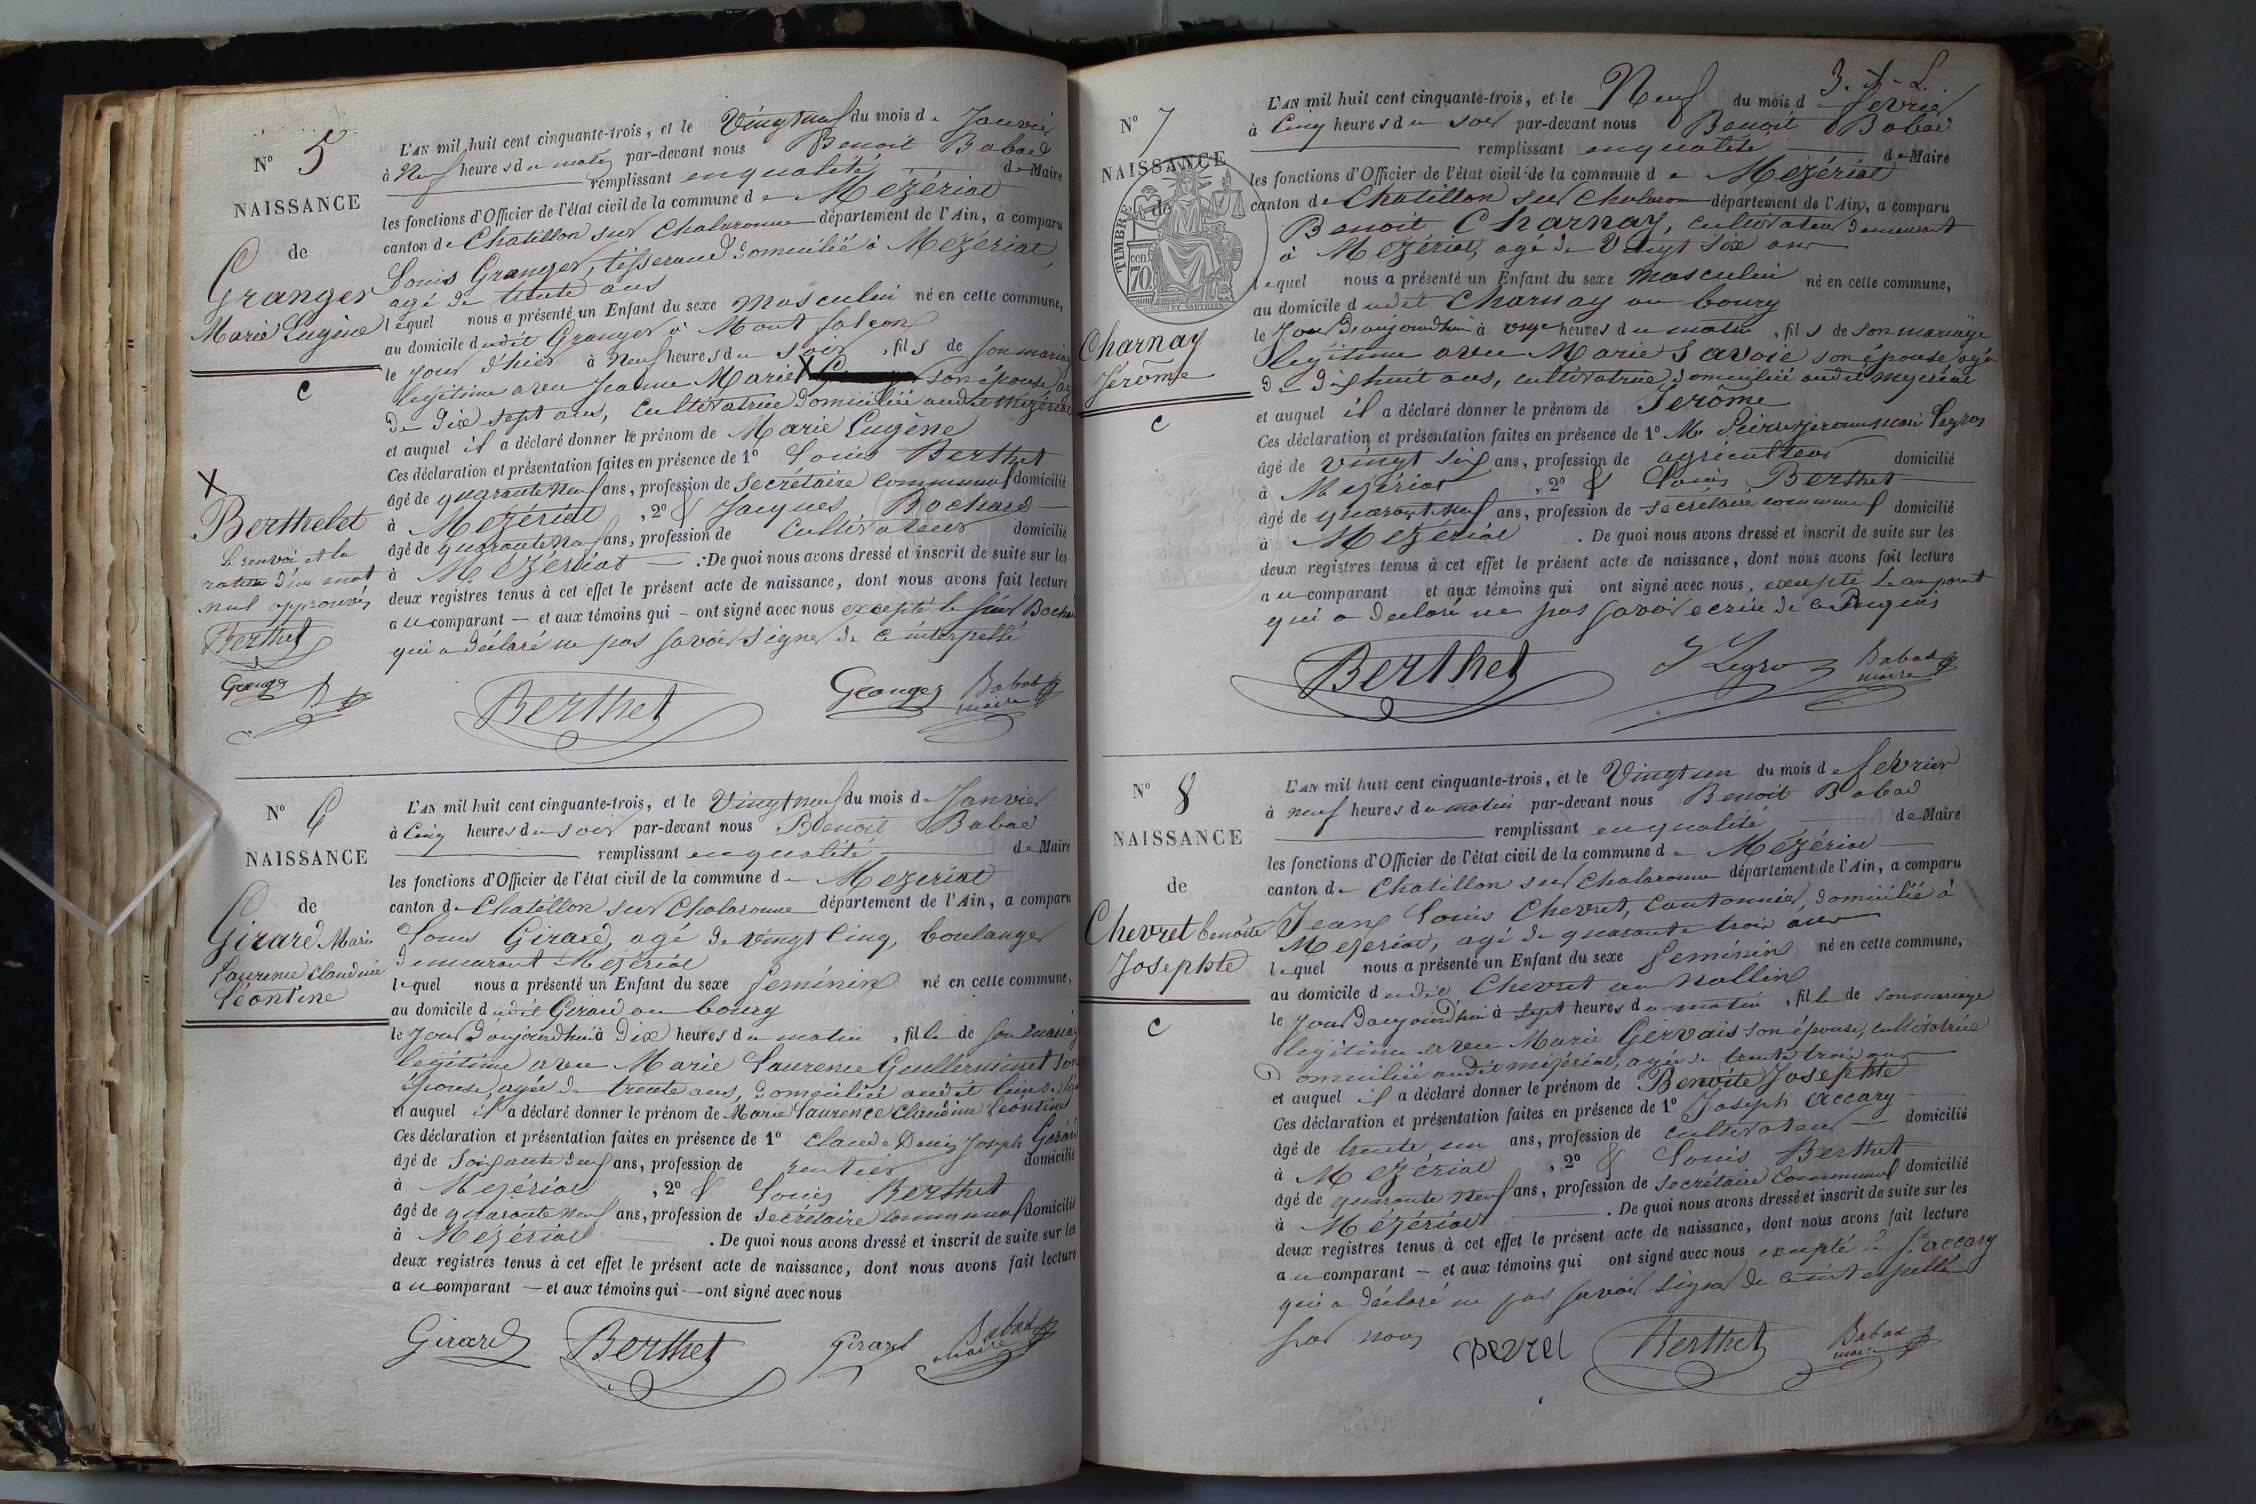 N° 5
NAISSANCE
de
Granger
Marie Eugène
C
X
Berthelet
Le renvoi et la
rature d'un mot
nul approuvés
Berthet
Granger
L'AN mil huit cent cinquante-trois, et le Vingt neuf du mois de Janvier
à Neuf heures du matin par-devant nous Benoit Babad
remplissant en qualité de Maire
les fonctions d'Officier de l'état civil de la commune de Mézériat
canton de Chatillon sur Chalaronne département de l'Ain, a comparu
Louis Granger, tisserand domicilié à Mézériat,
agé de trente ans
lequel nous a présenté un Enfant du sexe Masculin né en cette commune,
au domicile dudit Granger à Mont falcon
le jour d'hier à Neuf heures du soir, fils de son mariage
légitime avec Jeanne Marie X son épouse
de dix sept ans, cultivatrice domiciliée audit Mézériat
et auquel il a déclaré donner le prénom de Marie Eugène
Ces déclaration et présentation faites en présence de 1° Louis Berthet
âgé de quarante neuf ans, profession de Secrétaire communal domicilié
à Mézériat, 2° & Jacques Bochard
âgé de quarante neuf ans, profession de cultivateur domicilié
à Mézériat. De quoi nous avons dressé et inscrit de suite sur les
deux registres tenus à cet effet le présent acte de naissance, dont nous avons fait lecture
au comparant — et aux témoins qui — ont signé avec nous excepté le sieur Bochard
qui a déclaré ne pas savoir signer de ce interpellé
Berthet Granger Babad
maire
N° 6
NAISSANCE
de
Girard Marie
Laurence Claudine
Léontine
L'AN mil huit cent cinquante-trois, et le Vingt neuf du mois de Janvier
à Cinq heures du soir par-devant nous Benoit Babad
remplissant en qualité de Maire
les fonctions d'Officier de l'état civil de la commune de Mezériat
canton de Chatillon sur Chalaronne département de l'Ain, a comparu
Louis Girard, agé de vingt cinq, boulanger
demeurant Mézériat
lequel nous a présenté un Enfant du sexe féminin né en cette commune,
au domicile dudit Girard au bourg
le jour d'aujourd'hui à Dix heures du matin, fille de son mariage
légitime avec Marie Laurence Guillerminet son
épouse, agée de trente ans, domiciliée audit
et auquel il a déclaré donner le prénom de Marie Laurence Claudine Léontine
Ces déclaration et présentation faites en présence de 1° Claude Denis Joseph Girard
âgé de soixante neuf ans, profession de rentier domicilié
à Mezériat, 2° & Louis Berthet
âgé de quarante neuf ans, profession de Secrétaire communal domicilié
à Mézériat. De quoi nous avons dressé et inscrit de suite sur les
deux registres tenus à cet effet le présent acte de naissance, dont nous avons fait lecture
au comparant — et aux témoins qui — ont signé avec nous
Girard Berthet Girard Babad
maire
N° 7
NAISSANCE
de
TIMBRE
70 cen.
Charnay
Jérôme
C
L'AN mil huit cent cinquante-trois, et le Neuf du mois d février
à Cinq heures du soir par-devant nous Benoit Babad
remplissant en qualité de Maire
les fonctions d'Officier de l'état civil de la commune de Mézériat
canton de Chatillon sur Chalaronne département de l'Ain, a comparu
Benoit Charnay, cultivateur demeurant
à Mézériat, agé de Vingt six ans
lequel nous a présenté un Enfant du sexe Masculin né en cette commune,
au domicile dudit Charnay au bourg
le Jour d'aujourd'hui à onze heures du matin, fils de son mariage
légitime avec Marie Savoie son épouse agée
de dix huit ans, cultivatrice, domiciliée audit mézériat
et auquel il a déclaré donner le prénom de Jérôme
Ces déclaration et présentation faites en présence de 1° M. Pierre Jérome Marie Legros
âgé de vingt six ans, profession de agriculteur domicilié
à Mezériat, 2° & Louis Berthet
âgé de quarante neuf ans, profession de secrétaire communal domicilié
à Mézériat. De quoi nous avons dressé et inscrit de suite sur les
deux registres tenus à cet effet le présent acte de naissance, dont nous avons fait lecture
au comparant et aux témoins qui ont signé avec nous, excepté le comparant
qui a déclaré ne pas savoir écrire de ce Requis
Berthet J Legros Babad
maire
N° 8
NAISSANCE
de
Chevret benoite
Josephte
C
L'AN mil huit cent cinquante-trois, et le Vingt un du mois de février
à neuf heures du matin par-devant nous Benoit Babad
remplissant en qualité de Maire
les fonctions d'Officier de l'état civil de la commune de Mézériat
canton de Chatillon sur Chalaronne département de l'Ain, a comparu
Jean Louis Chevret, Cantonnier, domicilié à
Mezeriat, agé de quarante trois ans
lequel nous a présenté un Enfant du sexe féminin né en cette commune,
au domicile dudit Chevret au Mollin
le Jour d'aujourd'hui à sept heures du matin, fille de son mariage
légitime avec Marie Gervais son épouse, cultivatrice
Domiciliée audit mézériat, agée de trente trois ans
et auquel il a déclaré donner le prénom de Benoite Josephte
Ces déclaration et présentation faites en présence de 1° Joseph Accary
âgé de trente un ans, profession de cultivateur domicilié
à Mézériat, 2° & Louis Berthet
âgé de quarante neuf ans, profession de Secrétaire Communal domicilié
à Mézériat. De quoi nous avons dressé et inscrit de suite sur les
deux registres tenus à cet effet le présent acte de naissance, dont nous avons fait lecture
au comparant — et aux témoins qui ont signé avec nous excepté le sr accary
qui a déclaré ne pas savoir signer de ce interpellé
par nous Berthet Babad
maire